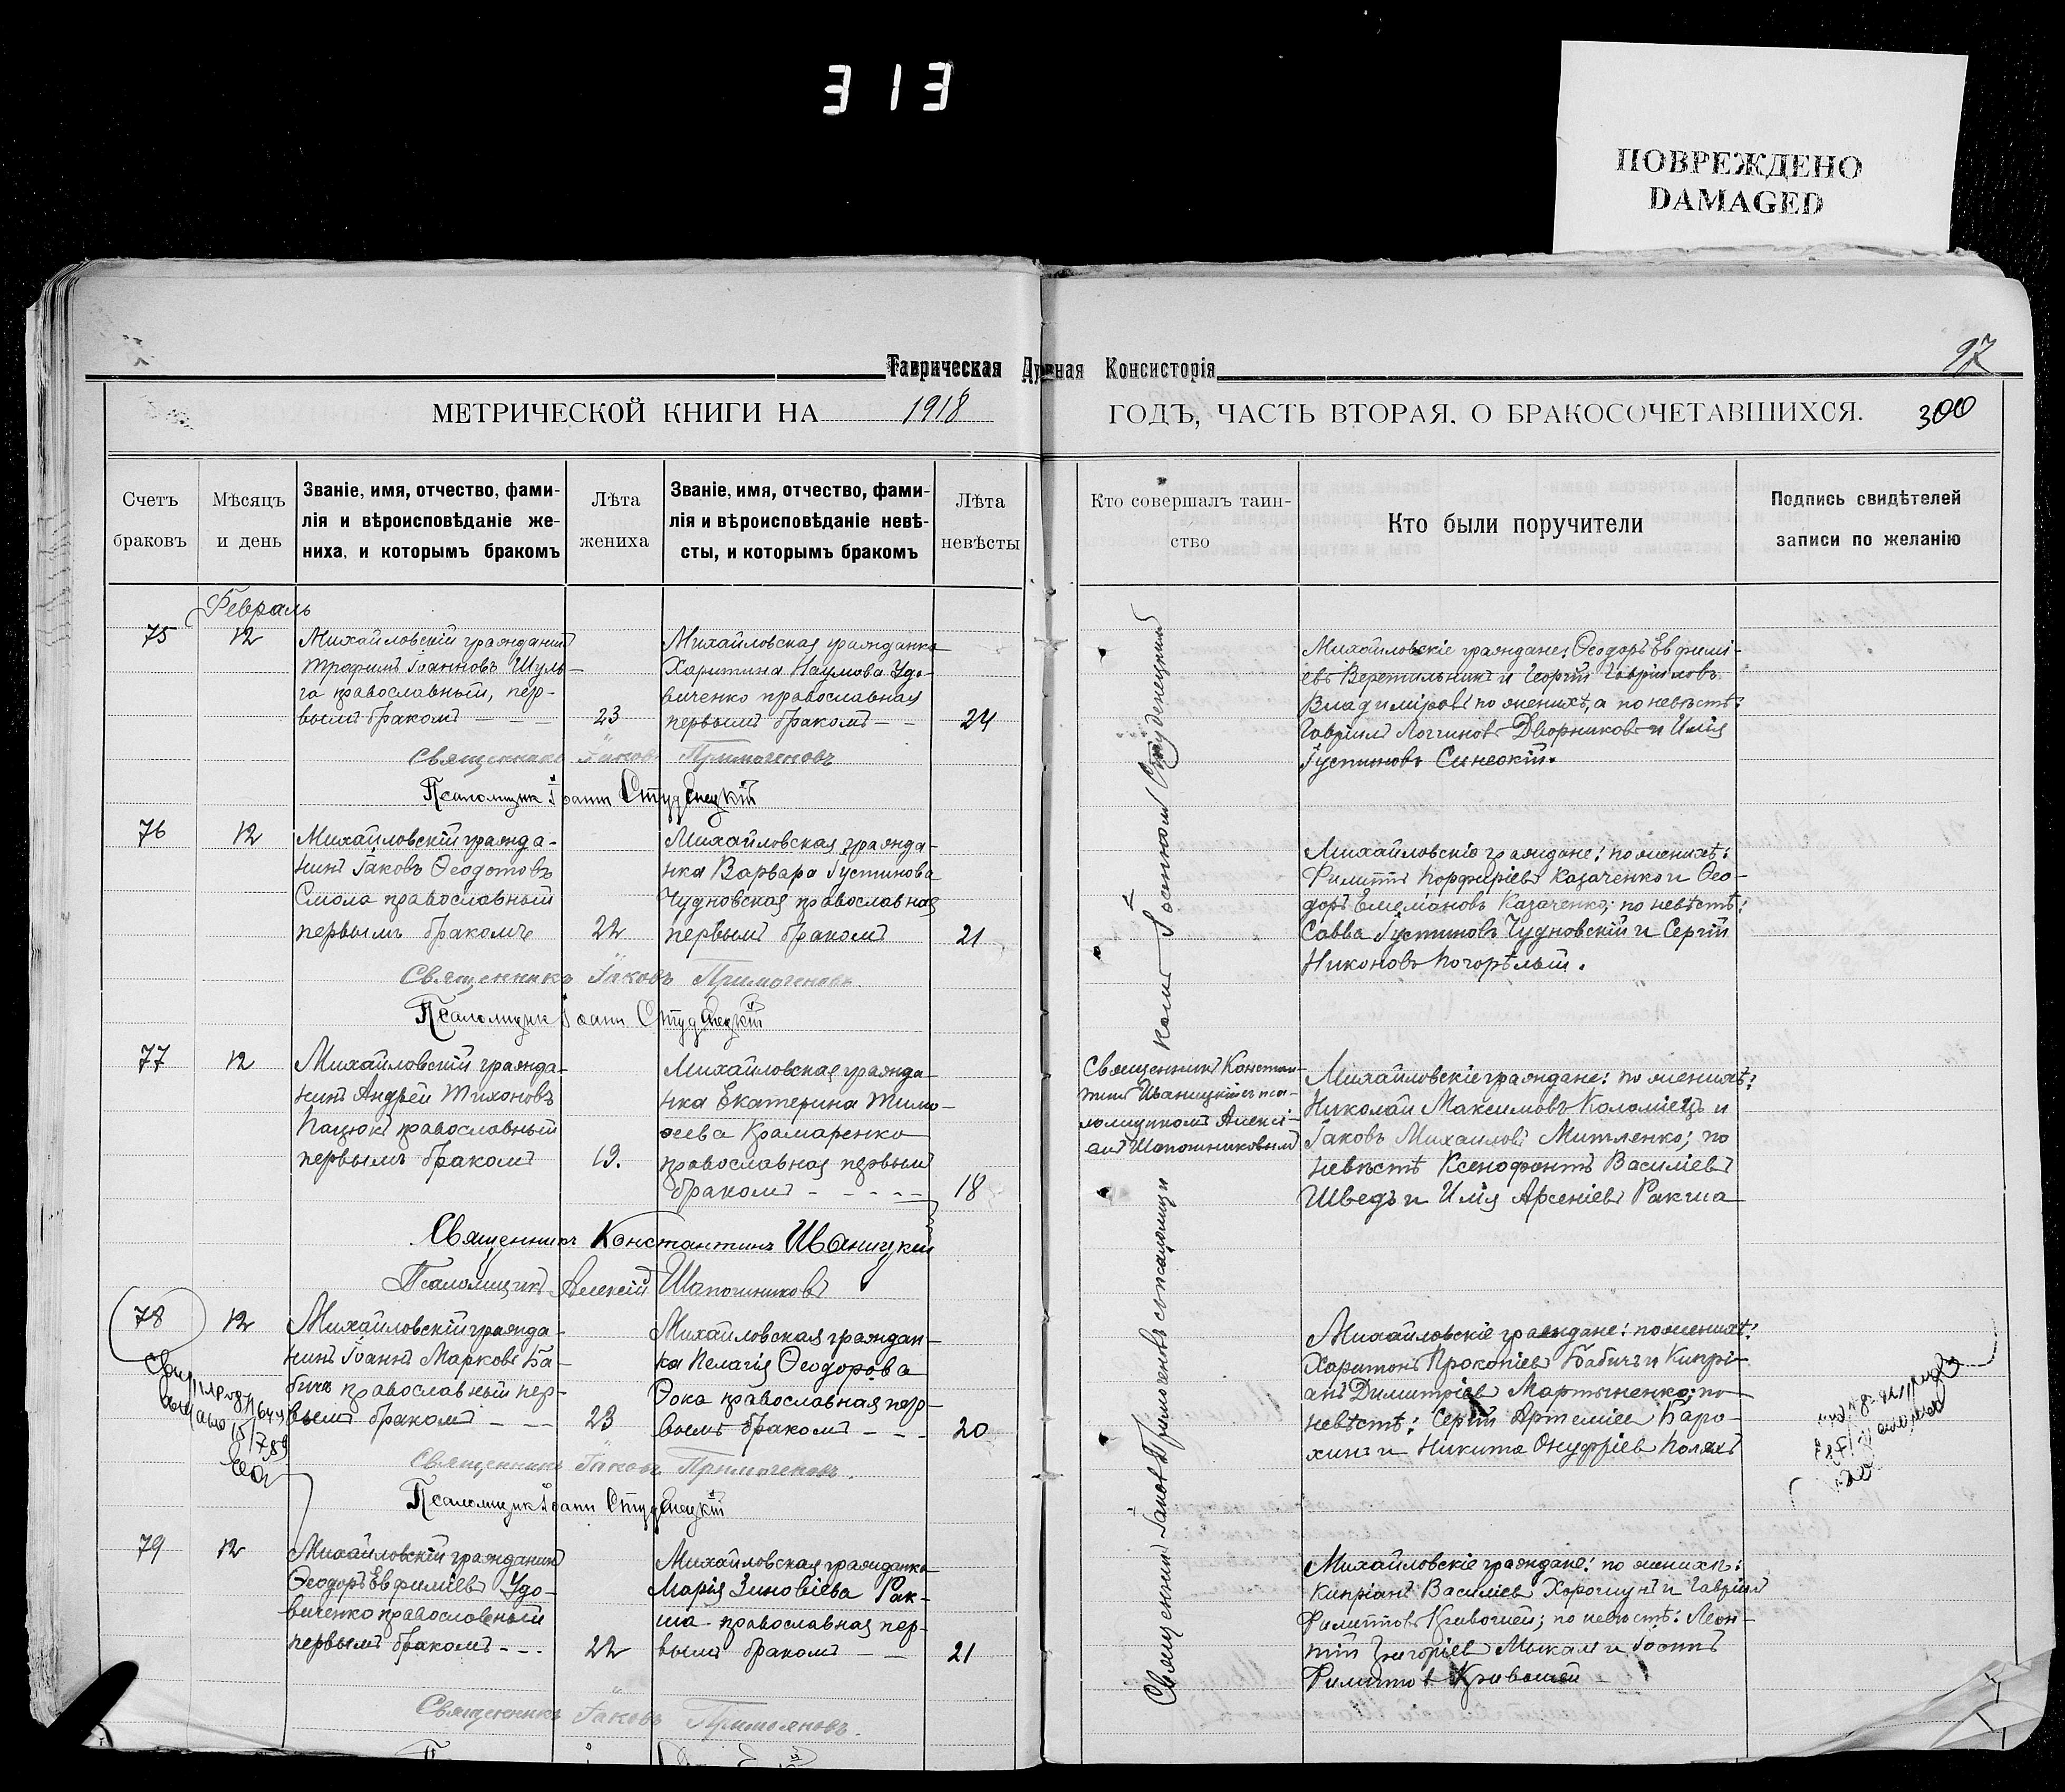 313
ПОВРЕЖДЕНО
DAMAGED
97
Таврическая Духовная Консисторія
МЕТРИЧЕСКОЙ КНИГИ НА 1918 ГОДЪ, ЧАСТЬ ВТОРАЯ, О БРАКОСОЧЕТАВШИХСЯ. 300
Счетъ
браковъ
Мѣсяцъ
и день
Званіе, имя, отчество, фами-
лія и вѣроисповѣданіе же-
ниха, и которымъ бракомъ
Лѣта
жениха
Званіе, имя, отчество, фами-
лія и вѣроисповѣданіе невѣ-
сты, и которымъ бракомъ
Лѣта
невѣсты
Кто совершалъ таин-
ство
Кто были поручители
Подпись свидѣтелей
записи по желанію
Февраль
75
12
Михайловскій гражданинъ
Трофимъ Іоанновъ Шуль-
га православный, пер-
вымъ бракомъ
23
Михайловская гражданка
Харитина Наумова Удо-
виченко православная
первымъ бракомъ
24
Михайловскіе граждане: Ѳеодоръ Евфимі-
евъ Веретильникъ и Георгій Гавріиловъ
Владиміровъ по женихѣ, а по невѣстѣ:
Гавріилъ Логгиновъ Дворниковъ и Илія
Іустиновъ Синеокій.
Священникъ Іаковъ Примогеновъ
Псаломщик Іоанн Студенецкій
76
12
Михайловскій гражда-
нинъ Іаковъ Ѳеодотовъ
Смола православный
первымъ бракомъ
22
Михайловская гражда-
нка Варвара Іустинова
Чудновская православная
первымъ бракомъ
21
Михайловскіе граждане: по женихѣ:
Филиппъ Порфиріевъ Казаченко и Ѳео-
доръ Емеліановъ Казаченко; по невѣстѣ:
Савва Іустиновъ Чудновскій и Сергій
Никоновъ Погорѣлый.
Священникъ Іаковъ Примогеновъ
Псаломщик Іоанн Студенецкій
77
12
Михайловскій гражда-
нинъ Андрей Тихоновъ
Пацюкъ православный
первымъ бракомъ
19.
Михайловская гражда-
нка Екатерина Тимо-
ѳеева Крамаренко
православная первымъ
бракомъ
18
Священникъ Констан-
тинъ Иваницкій съ пса-
ломщикомъ Алексі-
емъ Шапошниковымъ
Михайловскіе граждане: по женихѣ:
Николай Максимовъ Коломіецъ и
Іаковъ Михаиловъ Митленко; по
невѣстѣ Ксенофонтъ Василіевъ
Шведъ и Илія Арсеніевъ Ракша
Священникъ Константинъ Иваницкій
Псаломщикъ Алексій Шапошниковъ
78
12
Михайловскій гражда-
нинъ Іоаннъ Марковъ Ба-
бичъ православный пер-
вымъ бракомъ
23
Михайловская граждан-
ка Пелагія Ѳеодорова
Зока православная пер-
вымъ бракомъ
20
Михайловскіе граждане: по женихѣ:
Харитонъ Прокопіевъ Бабичъ и Кипрі-
анъ Димитріевъ Мартыненко; по
невѣстѣ: Сергій Артеміевъ Баро-
хинъ и Никита Онуфріевъ Поляхъ
Священникъ Іаковъ Примогеновъ.
Псаломщик Іоанн Студенецкій
79
12
Михайловскій гражданинъ
Ѳеодоръ Евфиміевъ Удо-
виченко православный
первымъ бракомъ
22
Михайловская гражданка
Марія Зиновіева Рак-
ша православная пер-
вымъ бракомъ
21
Михайловскіе граждане: по женихѣ:
Кипріанъ Василіевъ Хорошунъ и Гавріилъ
Филипповъ Кривошей; по невѣстѣ: Леон-
тій Григоріевъ Мыкал и Іоаннъ
Филипповъ Кривошей
Священникъ Іаковъ Примогеновъ.
Священникъ Іаковъ Примогеновъ съ псаломщикомъ Іоанномъ Студенецкимъ